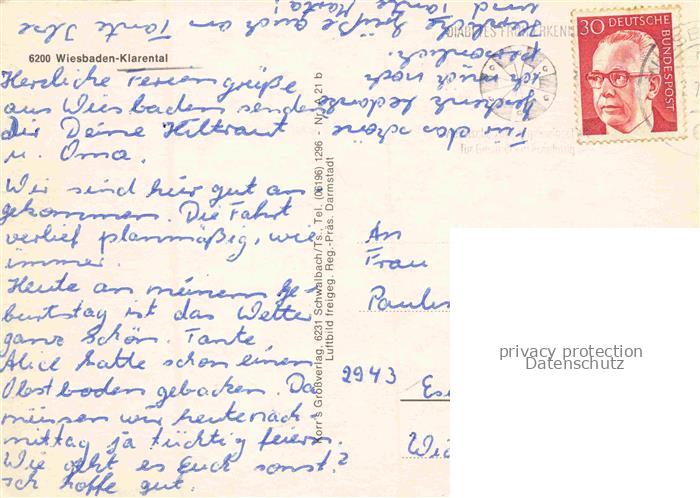 6200 Wiesbaden-Klarental
Herzliche Feriengrüße
aus Wiesbaden senden
Dir Deine Hiltraut
u. Oma.
Wir sind hier gut an
gekommen. Die Fahrt
verlief planmäßig, wie
immer.
Heute an meinem Ge-
burtstag ist das Wetter
ganz schön. Tante
Alice hatte schon einen
Obstboden gebacken. Da
müssen wir heutenach-
mittag ja tüchtig feiern.
Wie geht es Euch sonst?
Ich hoffe gut.
Für das schöne
Geschenk bedanke
ich mich noch
persönlich.
Herzliche Grüße auch an Tante Ilse
und Tante Marta!
Korr's Großverlag, 6231 Schwalbach/Ts. Tel. (06196) 1296 - Nr. A 21 b
Luftbild freigeg. Reg.-Präs. Darmstadt
30 DEUTSCHE
BUNDESPOST
DIABETES ERKENNEN
An
Frau
2943
privacy protection
Datenschutz